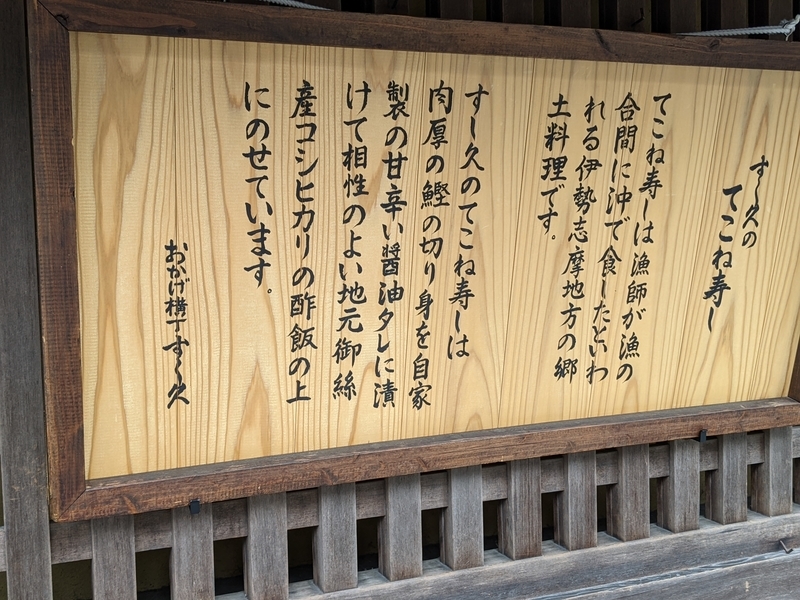 すし久の
てこね寿し
てこね寿しは漁師が漁の
合間に沖で食したといわ
れる伊勢志摩地方の郷
土料理です。
すし久のてこね寿しは
肉厚の鰹の切り身を自家
製の甘辛い醤油タレに漬
けて相性のよい地元御絲
産コシヒカリの酢飯の上
にのせています。
おかげ横丁すし久